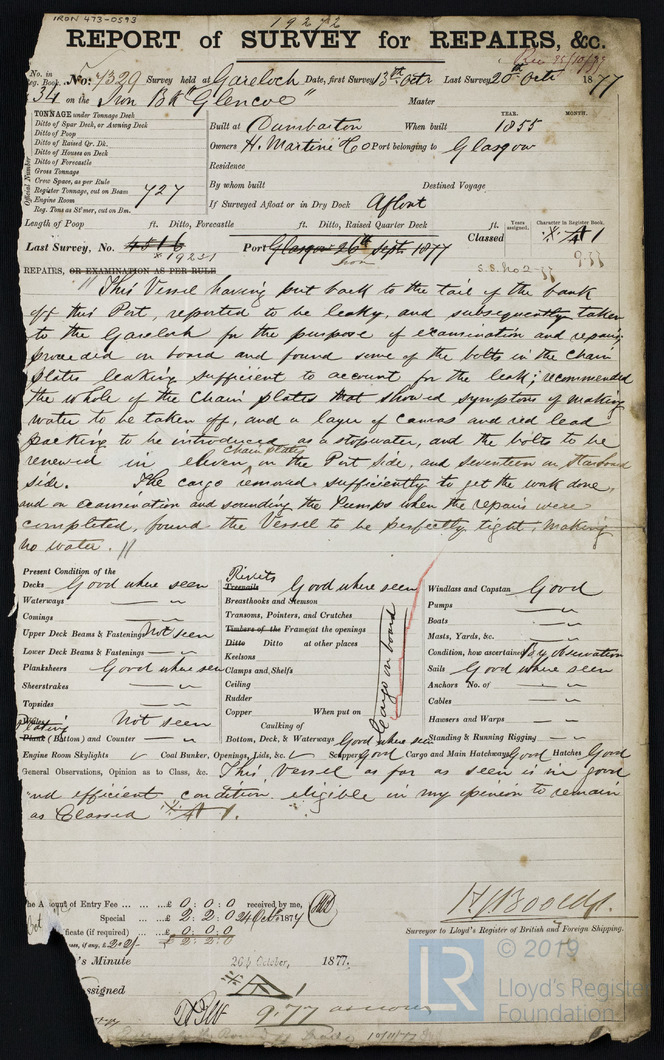 IRON 473-0593
19272
REPORT of SURVEY for REPAIRS, &c.
Rec 25/10/77
No. in Reg. Book. No: 7329 Survey held at Gareloch Date, first Survey 13th Octr Last Survey 20th Octr 1877
34 on the Iron Bk "Glencoe" Master
TONNAGE under Tonnage Deck
Ditto of Spar Deck, or Awning Deck
Ditto of Poop
Ditto of Raised Qr. Dk.
Ditto of Houses on Deck
Ditto of Forecastle
Gross Tonnage
Crew Space, as per Rule
Register Tonnage, cut on Beam 727
Engine Room
Reg. Tons as St'mer, cut on Bm.
Official Number
YEAR. MONTH.
Built at Dumbarton When built 1855
Owners H. Martini & Co Port belonging to Glasgow
Residence
By whom built Destined Voyage
If Surveyed Afloat or in Dry Dock Afloat
Length of Poop ft. Ditto, Forecastle ft. Ditto, Raised Quarter Deck ft.
Years assigned. Character in Register Book.
Last Survey, No. 4516 Port Glasgow 26th Sept. 1877 Classed A 1
19231 Iron 9.77
REPAIRS, OR EXAMINATION AS PER RULE S.S. No 2
"This Vessel having put back to the tail of the bank
off this Port, reported to be leaky, and subsequently taken
to the Gareloch for the purpose of examination and repairs
proceeded on board and found some of the bolts in the chain
plates leaking sufficient to account for the leak; recommended
the whole of the chain plates that showed symptoms of making
water to be taken off, and a layer of canvas and red lead
packing to be introduced as a stopwater, and the bolts to be
renewed in eleven chain plates on the Port side, and seventeen on Starboard
side. The cargo removed sufficiently to get the work done,
and on examination and sounding the Pumps when the repairs were
completed, found the Vessel to be perfectly tight, making
no water. //
Present Condition of the
Decks Good where seen
Waterways — "
Comings — "
Upper Deck Beams & Fastenings Not seen
Lower Deck Beams & Fastenings — "
Planksheers Good where seen
Sheerstrakes — "
Topsides — "
Wales
Plating Not seen
Plank (Bottom) and Counter — "
Rivets
Treenails Good where seen
Breasthooks and Stemson
Transoms, Pointers, and Crutches
Timbers of the Frame, at the openings
Ditto Ditto at other places
Keelsons
Clamps and Shelfs
Ceiling
Rudder
Copper When put on
Caulking of
Bottom, Deck, & Waterways Good where seen
Cargo on board
Windlass and Capstan Good
Pumps — "
Boats — "
Masts, Yards, &c. — "
Condition, how ascertained By observation
Sails Good where seen
Anchors No. of — "
Cables — "
Hawsers and Warps — "
Standing & Running Rigging — "
Engine Room Skylights ✓ Coal Bunker, Openings, Lids, &c. ✓ Scuppers Good Cargo and Main Hatchways Good Hatches Good
General Observations, Opinion as to Class, &c. This Vessel as far as seen is in good
and efficient condition eligible in my opinion to remain
as Classed A 1.
he Amount of Entry Fee ... ... ...£ 0 : 0 : 0 received by me,
Oct Special ... ...£ 2 : 2 : 0 24 Octr 1877
ficate (if required) ...£ 0 : 0 : 0
es, if any, £ 2 : 2 : 0
Surveyor to Lloyd's Register of British and Foreign Shipping.
's Minute 26th October, 1877.
ssigned A 1
9.77 as now
10/11/77
LR
© 2019
Lloyd's Register
Foundation